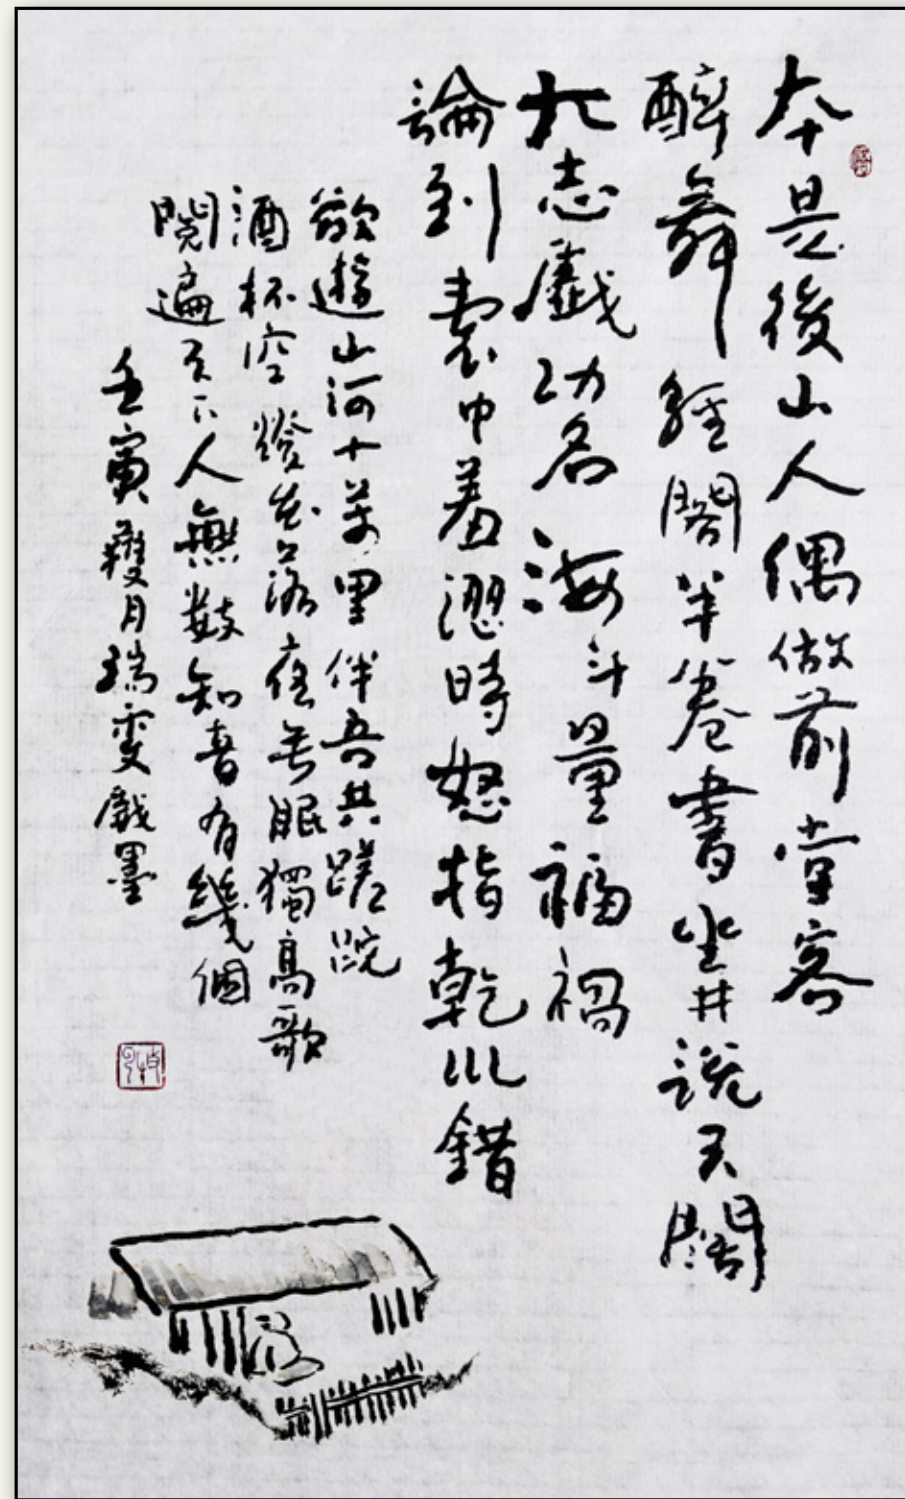 本是後山人偶做前堂客
醉舞經閣半卷書坐井說天闊
大志戲功名海斗量福禍
論到囊中羞澀時怒指乾坤錯
欲遊山河十萬里伴吾共蹉跎
酒杯空燈花落夜無眠獨高歌
閱遍天下人無數知音有幾個
壬寅月瑞雯戲墨